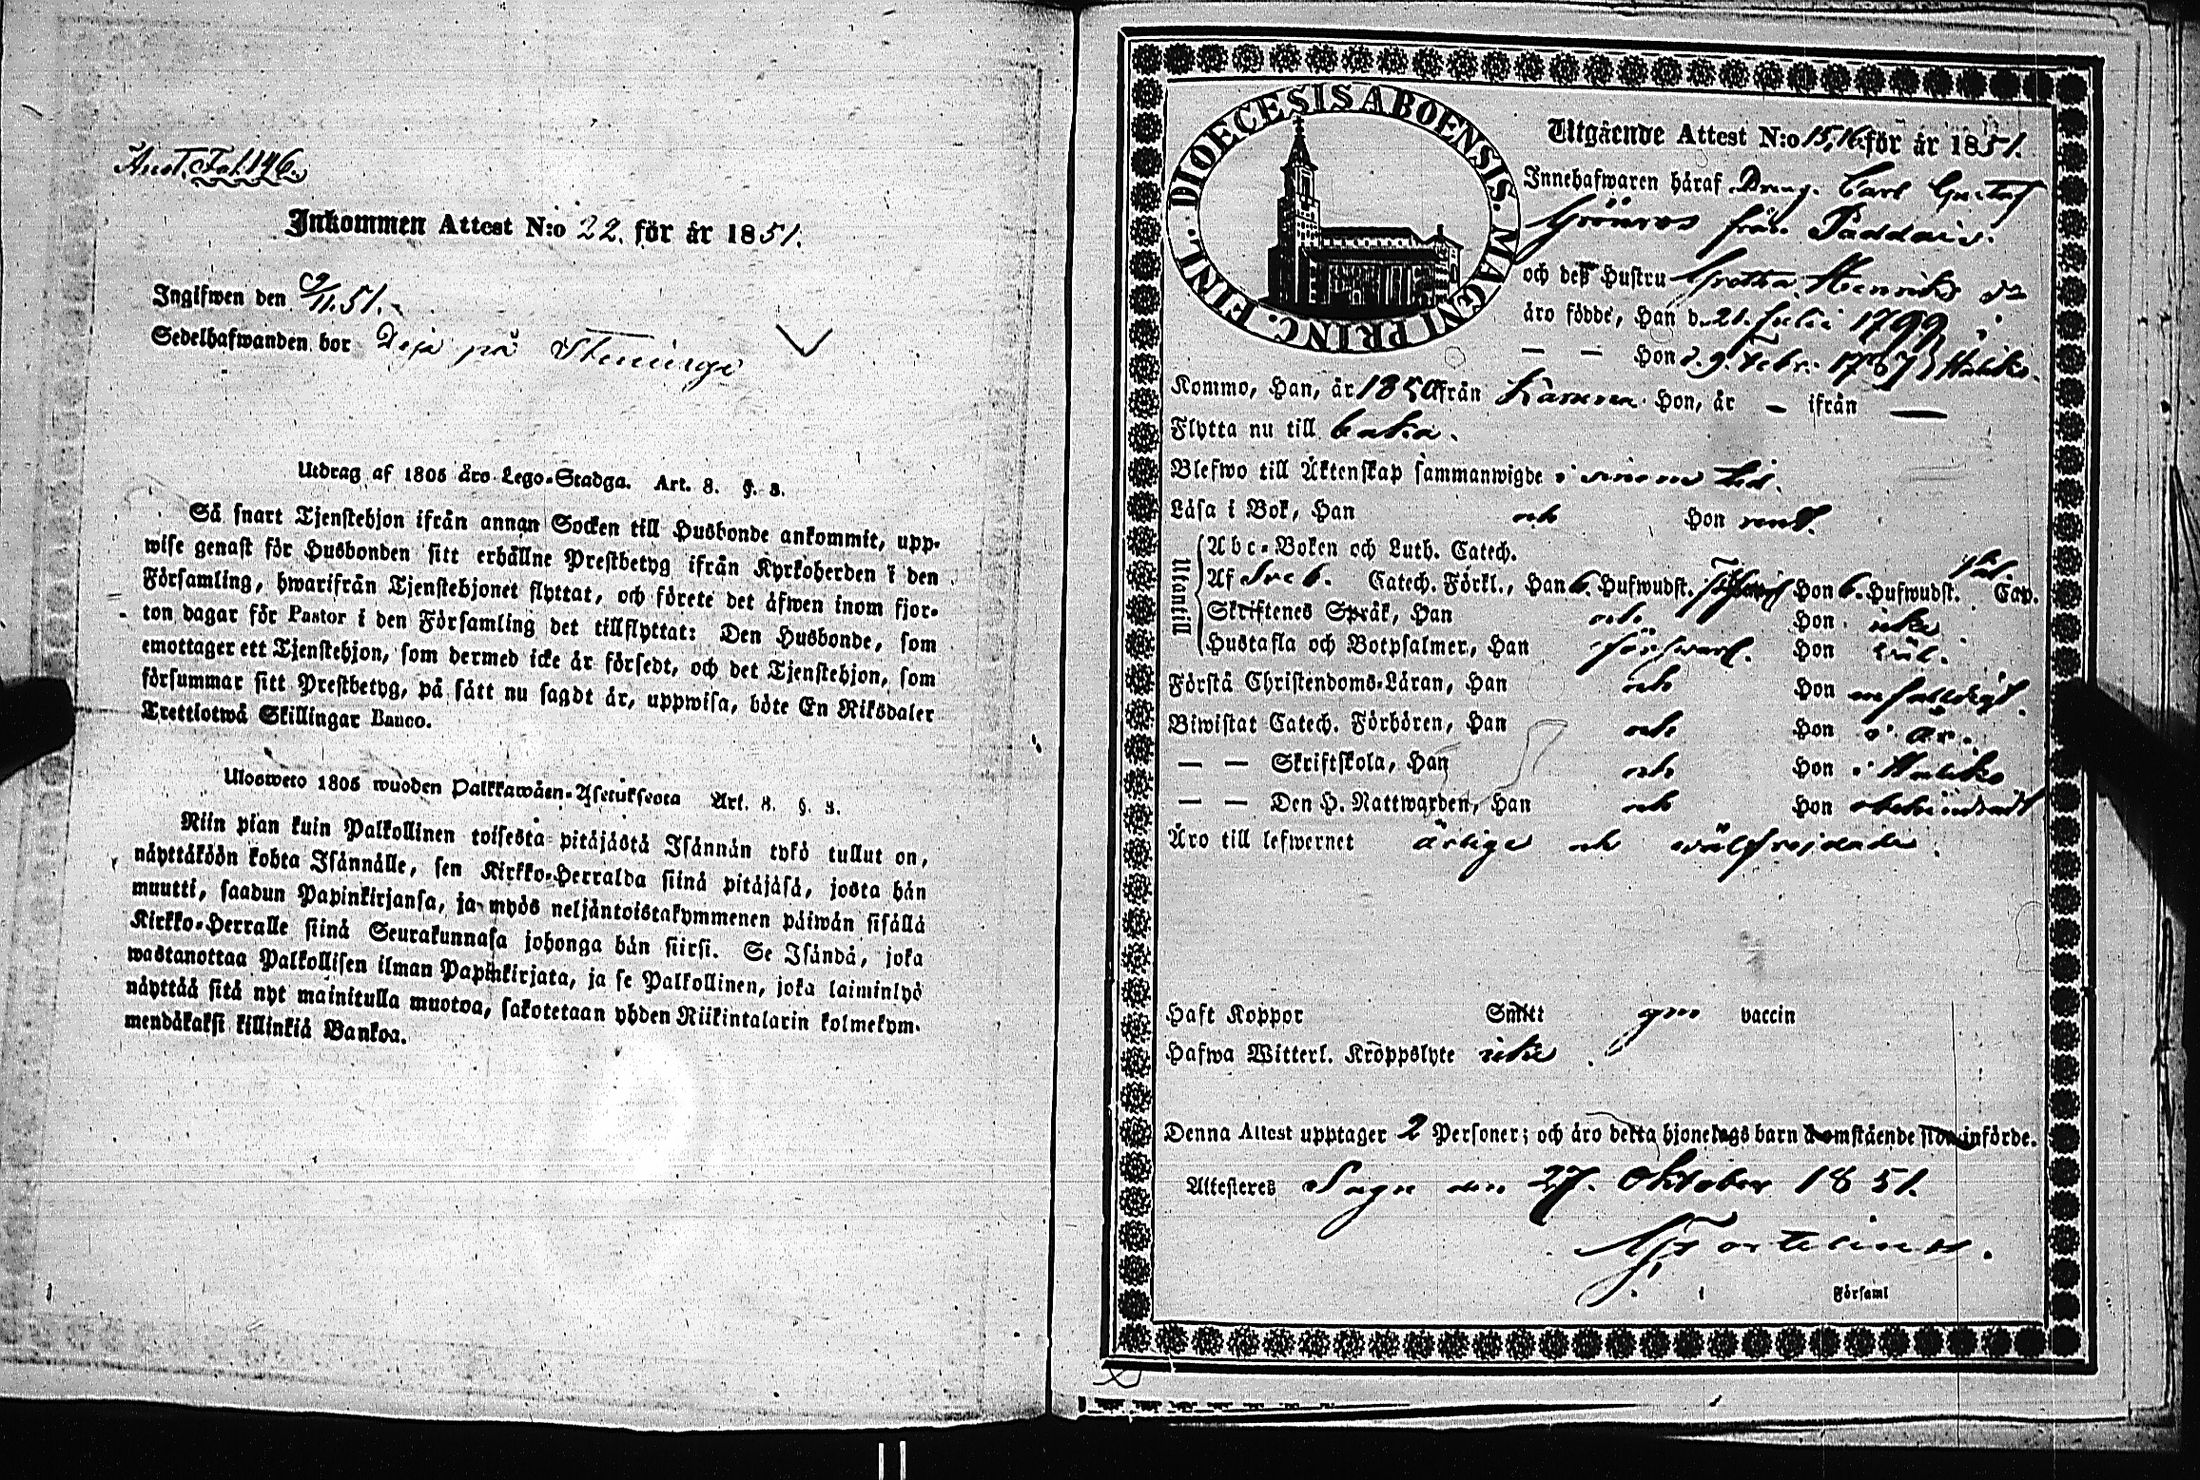 Anst. Fol. 146.
Inkommen Attest N:o 22. för år 1851.
Ingifwen den 9/11. 51.
Sedelhafwanden bor Deja på Steninge
Utdrag af 1805 års Lego-Stadga. Art. 8. §. 3.
Så snart Tjenstehjon ifrån annan Socken till Husbonde ankommit, upp-
wise genast för Husbonden sitt erhållne Prestbetyg ifrån Kyrkoherden i den
Församling, hwarifrån Tjenstehjonet flyttat, och förete det äfwen inom fjor-
ton dagar för Pastor i den Församling det tillflyttat: Den Husbonde, som
emottager ett Tjenstehjon, som dermed icke är försedt, och det Tjenstehjon, som
försummar sitt Prestbetyg, på sätt nu sagdt är, uppwisa, böte En Riksdaler
Trettiotwå Skillingar Banco.
Ulosweto 1805 wuoden Palkkawäen-Asetuksesta Art. 8. §. 3.
Niin pian kuin Palkollinen toisesta pitäjästä Isännän tykö tullut on,
näyttäköön kohta Isännälle, sen Kirkko-Herralda siinä pitäjäsä, josta hän
muutti, saadun Papinkirjansa, ja myös neljäntoistakymmenen päiwän sisällä
Kirkko-Herralle siinä Seurakunnasa johonga hän siirsi. Se Isändä, joka
wastanottaa Palkollisen ilman Papinkirjata, ja se Palkollinen, joka laiminlyö
näyttää sitä nyt mainitulla muotoa, sakotetaan yhden Riikintalarin kolmekym-
mendäkaksi killinkiä Bankoa.
DIOECESIS ABOENSIS. MAGNI PRINC. FINL.
Utgående Attest N:o 15,16 för år 1851.
Innehafwaren häraf Dreng. Carl Gustaf
Grönros från Paddais.
och deß Hustru Gretha Henriks dr
äro födde, Han d. 21. Juli 1799
— — Hon d. 9. Febr. 1787 Haliko.
Kommo, Han, år 1850 från Hon, år — ifrån —
Flytta nu till
Blefwo till Äktenskap sammanwigde i sinom tid.
Läsa i Bok, Han och Hon rent.
Utantill
Abc-Boken och Luth. Catech.
Af Sve b. Catech. Förkl., Han 6. Hufwudst. Hon 6. Hufwudst. Cap.
Skriftenes Språk, Han och Hon icke
Hustafla och Botpsalmer, Han försvarl. Hon wäl.
Förstå Christendoms-Läran, Han och Hon enfalldigt.
Biwistat Catech. Förhören, Han och Hon i år.
— — Skriftskola, Han och Hon i Haliko
— — Den H. Nattwarden, Han och Hon obehindradt
Äro till lefwernet ärlige och wälfrejdade.
Haft Koppor Smitt gm vaccin
Hafwa Witterl. Kroppslyte icke.
Denna Attest upptager 2 Personer; och äro detta hjonelags barn å omstående sida införde.
Attesteres Sagu den 27. Oktober 1851.
i Församl